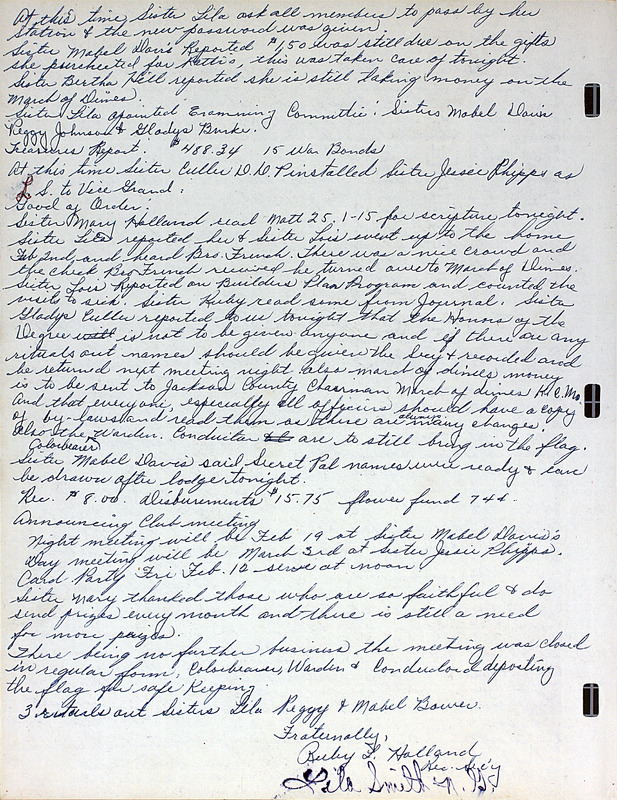 At this time Sister Lila ask all members to pass by her
station & the new password was given.
Sister Mabel Davis Reported $1,50 was still due on the gifts
she purcheted for Pettis, this was taken care of tonight.
Sister Bertha Hill reported she is still taking money on the
March of Dimes.
Sister Lila apointed Examining Committie: Sisters Mabel Davis
Peggy Johnson & Gladys Burke.
Treasures Report. $488.34 15 War Bonds
At this time Sister Culler D.D.P. installed Sister Jessie Phipps as
L. S. to Vice Grand:
Good of Order:
Sister Mary Holland read Matt 25. 1-15 for scripture tonight.
Sister Lila reported her & Sister Lois went up to the home
Feb 2nd and heard Bro. French. There was a nice crowd and
the check Bro French recived he turned over to March of Dimes.
Sister Lois Reported on Builders Plan Program and counted the
visits to sick. Sister Ruby read some from Journal. Sister
Gladys Culler reported to us tonight that the Honors of the
Degree will is not to be given anyone and if there are any
rituals out names should be given the Secy & recorded and
be returned next meeting night also march of dimes money
is to be sent to Jackson County Chairman March of dimes K. C. Mo.
And that everyone, especially all officers should have a copy
of by-laws and read them as there are many changes.
Also the Warden. Conductor are to still bring in the flag.
Colorbearer
Sister Mabel Davis said Secret Pal names were ready & can
be drawn after lodge tonight.
Rec. $8.00. Disbursments $15.75 flower fund 74¢.
Announcing Club meeting
Night meeting will be Feb 19 at Sister Mabel Davis's
Day meeting will be March 3rd at Sister Jessie Phipps.
Card Party Fri Feb. 12 serve at noon
Sister Mary thanked those who are so faithful & do
send prizes every month and there is still a need
for more prizes.
There being no further business the meeting was closed
in regular form, Colorbearer, Warden & Conductord deposting
the flag for safe keeping
3 rituals out Sisters Lila Peggy & Mabel Bower.
Fraternally,
Ruby L. Holland
Rec. Sec'y
Lila Smith N. G.